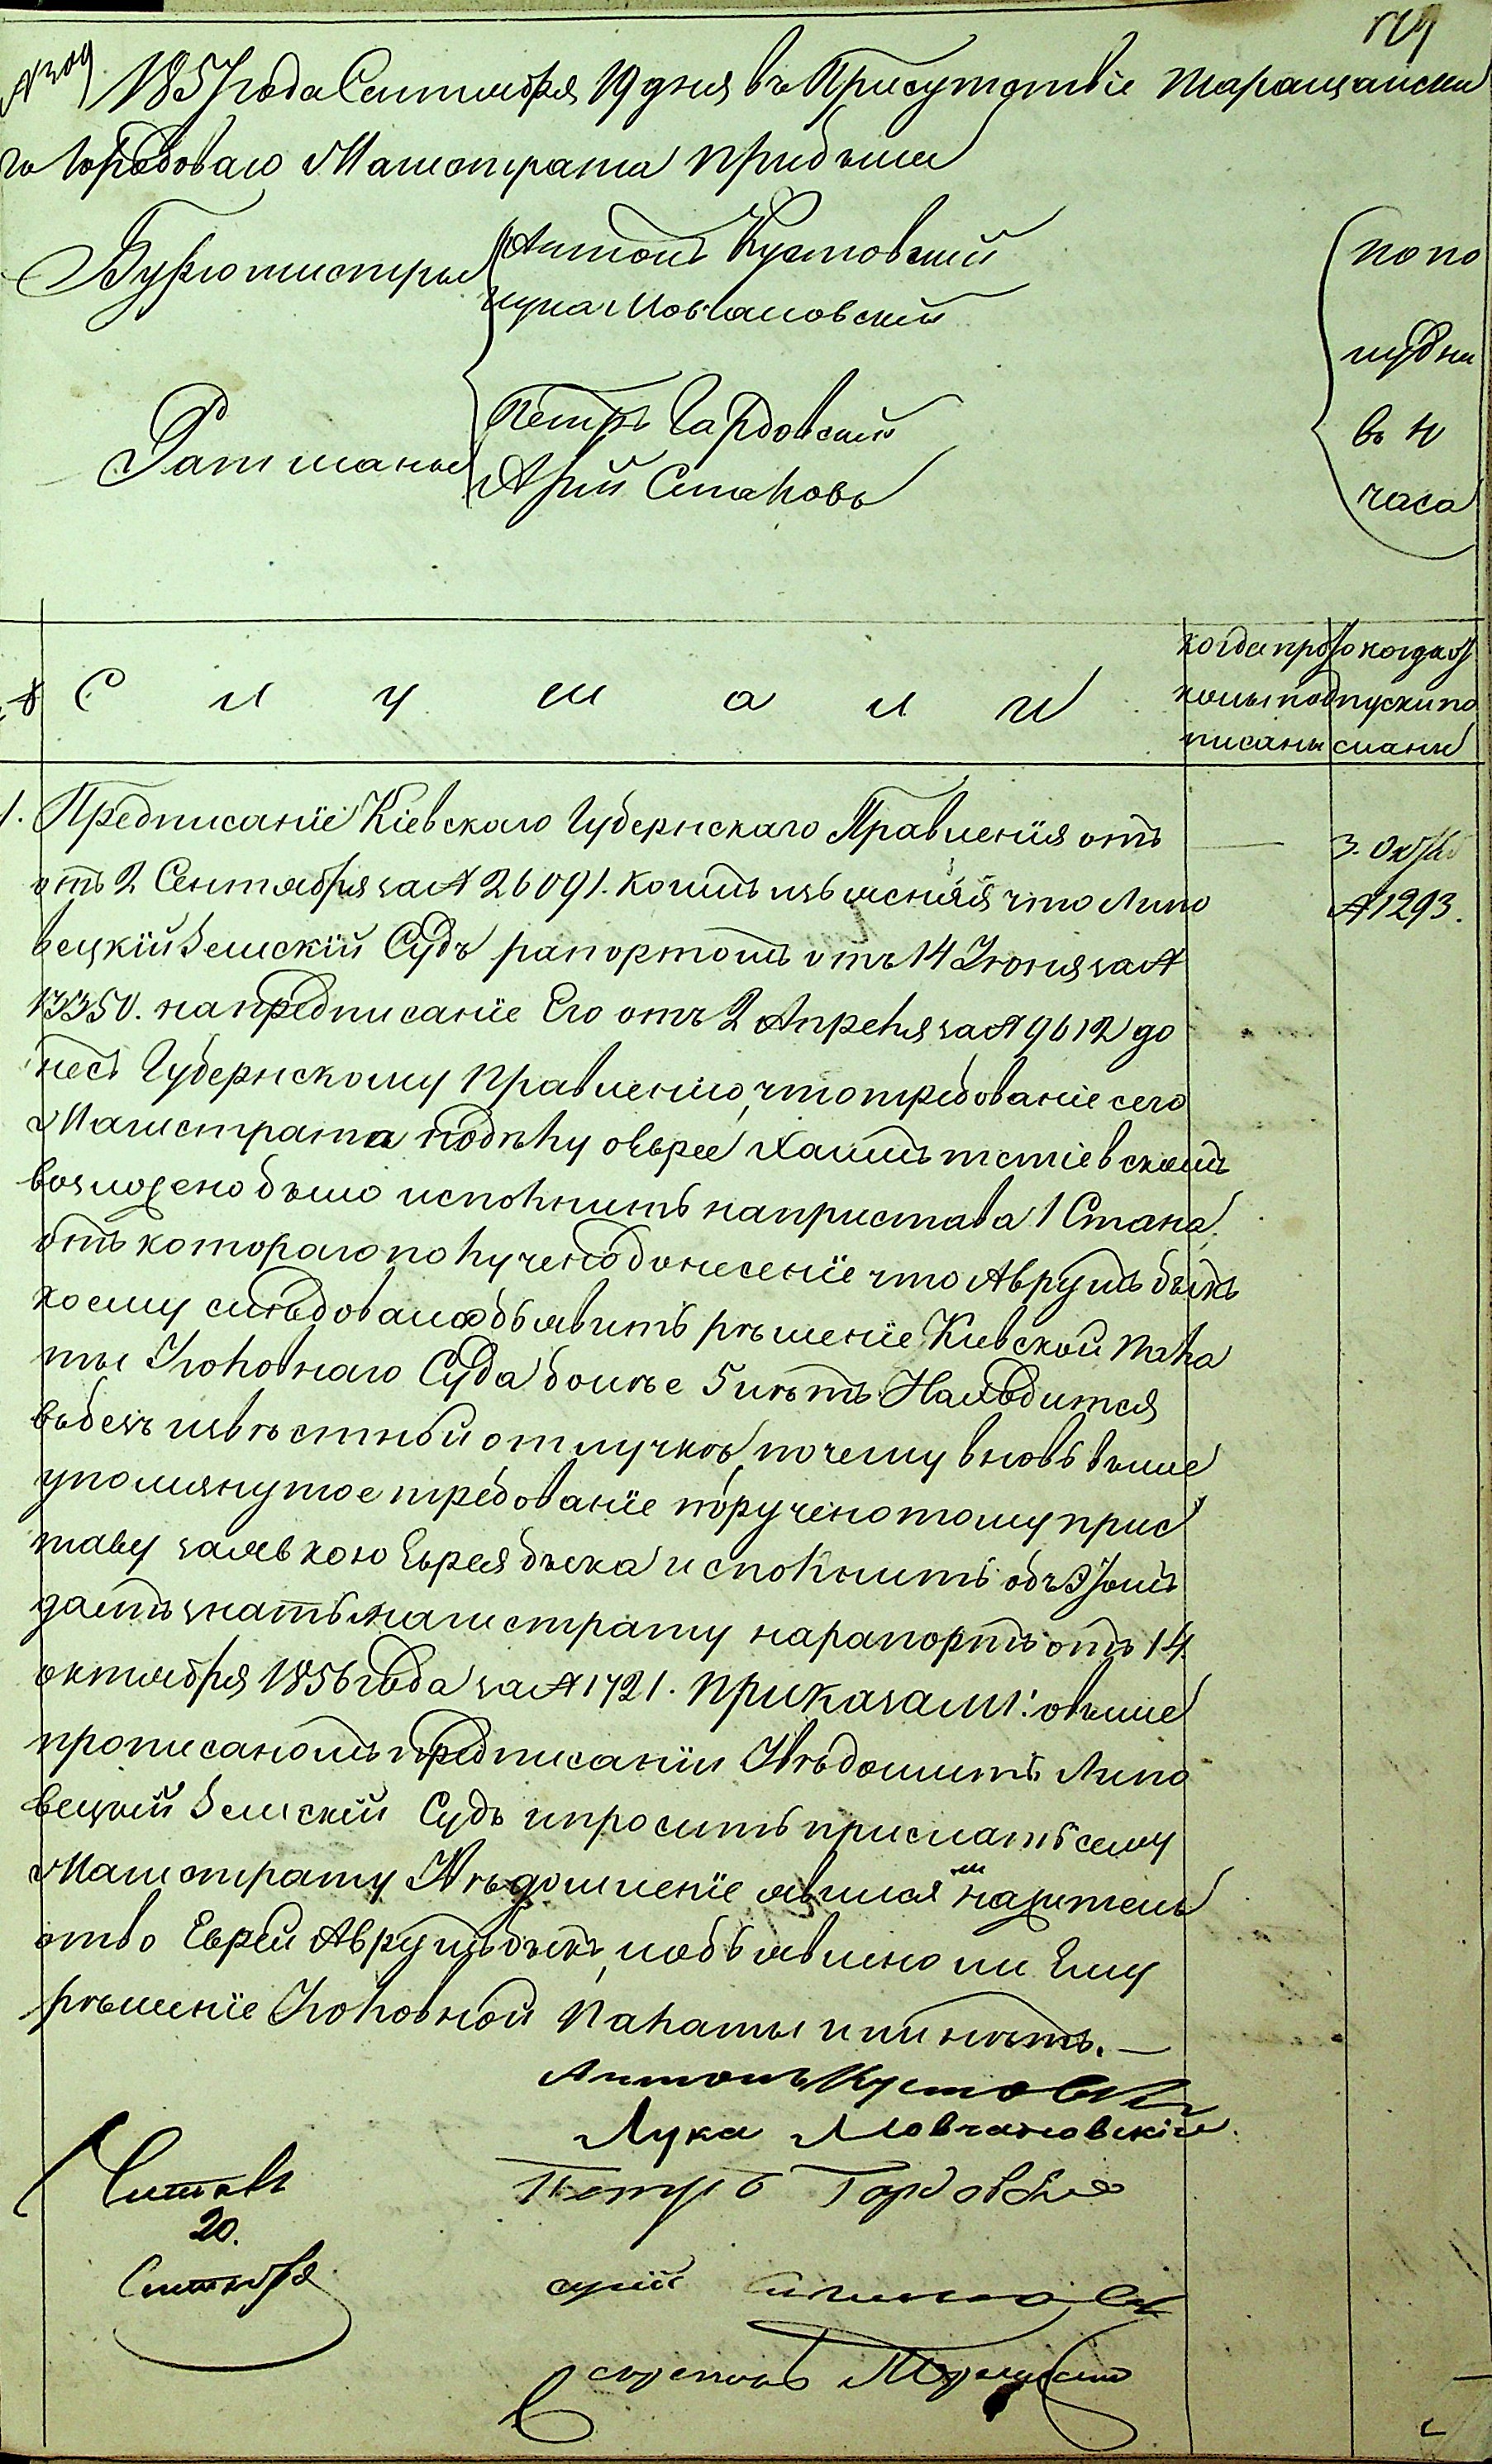 1857 года Сентября 19 дня въ Присутствіе Таращанска
го Городоваго Магистрата прибыли
Бургомистры
Антонъ Кустовскій
Лука Мовчановскій
Ратманы
Петръ Гардовскій
Арій Сипаковъ
попо
лудни
въ
часа
№ Слушали
когда прото
колы под
писаны
когда от
пуски по
сланы
1. Предписаніе Кіевскаго Губернскаго Правленія отъ
отъ 2 Сентября за № 26091. коимъ изъясняя что Липо
вецкій Земскій Судъ рапортомъ отъ 14 Іюня за №
13350. на предписаніе Его отъ 2 Апреля за № 9612 до
несъ Губернскому Правленію, что требованіе сего
Магистрата подѣлу о Еврее Хаимѣ
возложено было исполнить на пристава 1 Стана,
отъ котораго получено донесеніе что Аврумъ Быкъ
коему слѣдовало объявить рѣшеніе Киевской Пала
ты Уголовнаго Суда болѣе 5 лѣтъ Находится
въ безъ извѣстной отлучкѣ, почему вновь выше
упомянутое требованіе поручено тому прис
таву за явкою Еврея быка исполнить объ этомъ
даетъ знать Магистрату на рапортъ отъ 14
октября 1856 года за № 1721. Приказали: о выше
прописаномъ предписаніи Увѣдомить Липо
вецкій Земскій Судъ и просить прислать сему
Магистрату Увѣдомленіе явился ли на жительс
ство Еврей Аврумъ быкъ, и объявлено ли Ему
рѣшеніе Уголовной Палаты или нѣтъ. —
3. Октяб
№ 1293.
Антонъ Кустовскій
Лука Мовчановскій.
Петръ Гардовскій
Арій Сипаковъ
Читалъ
20.
Сентября